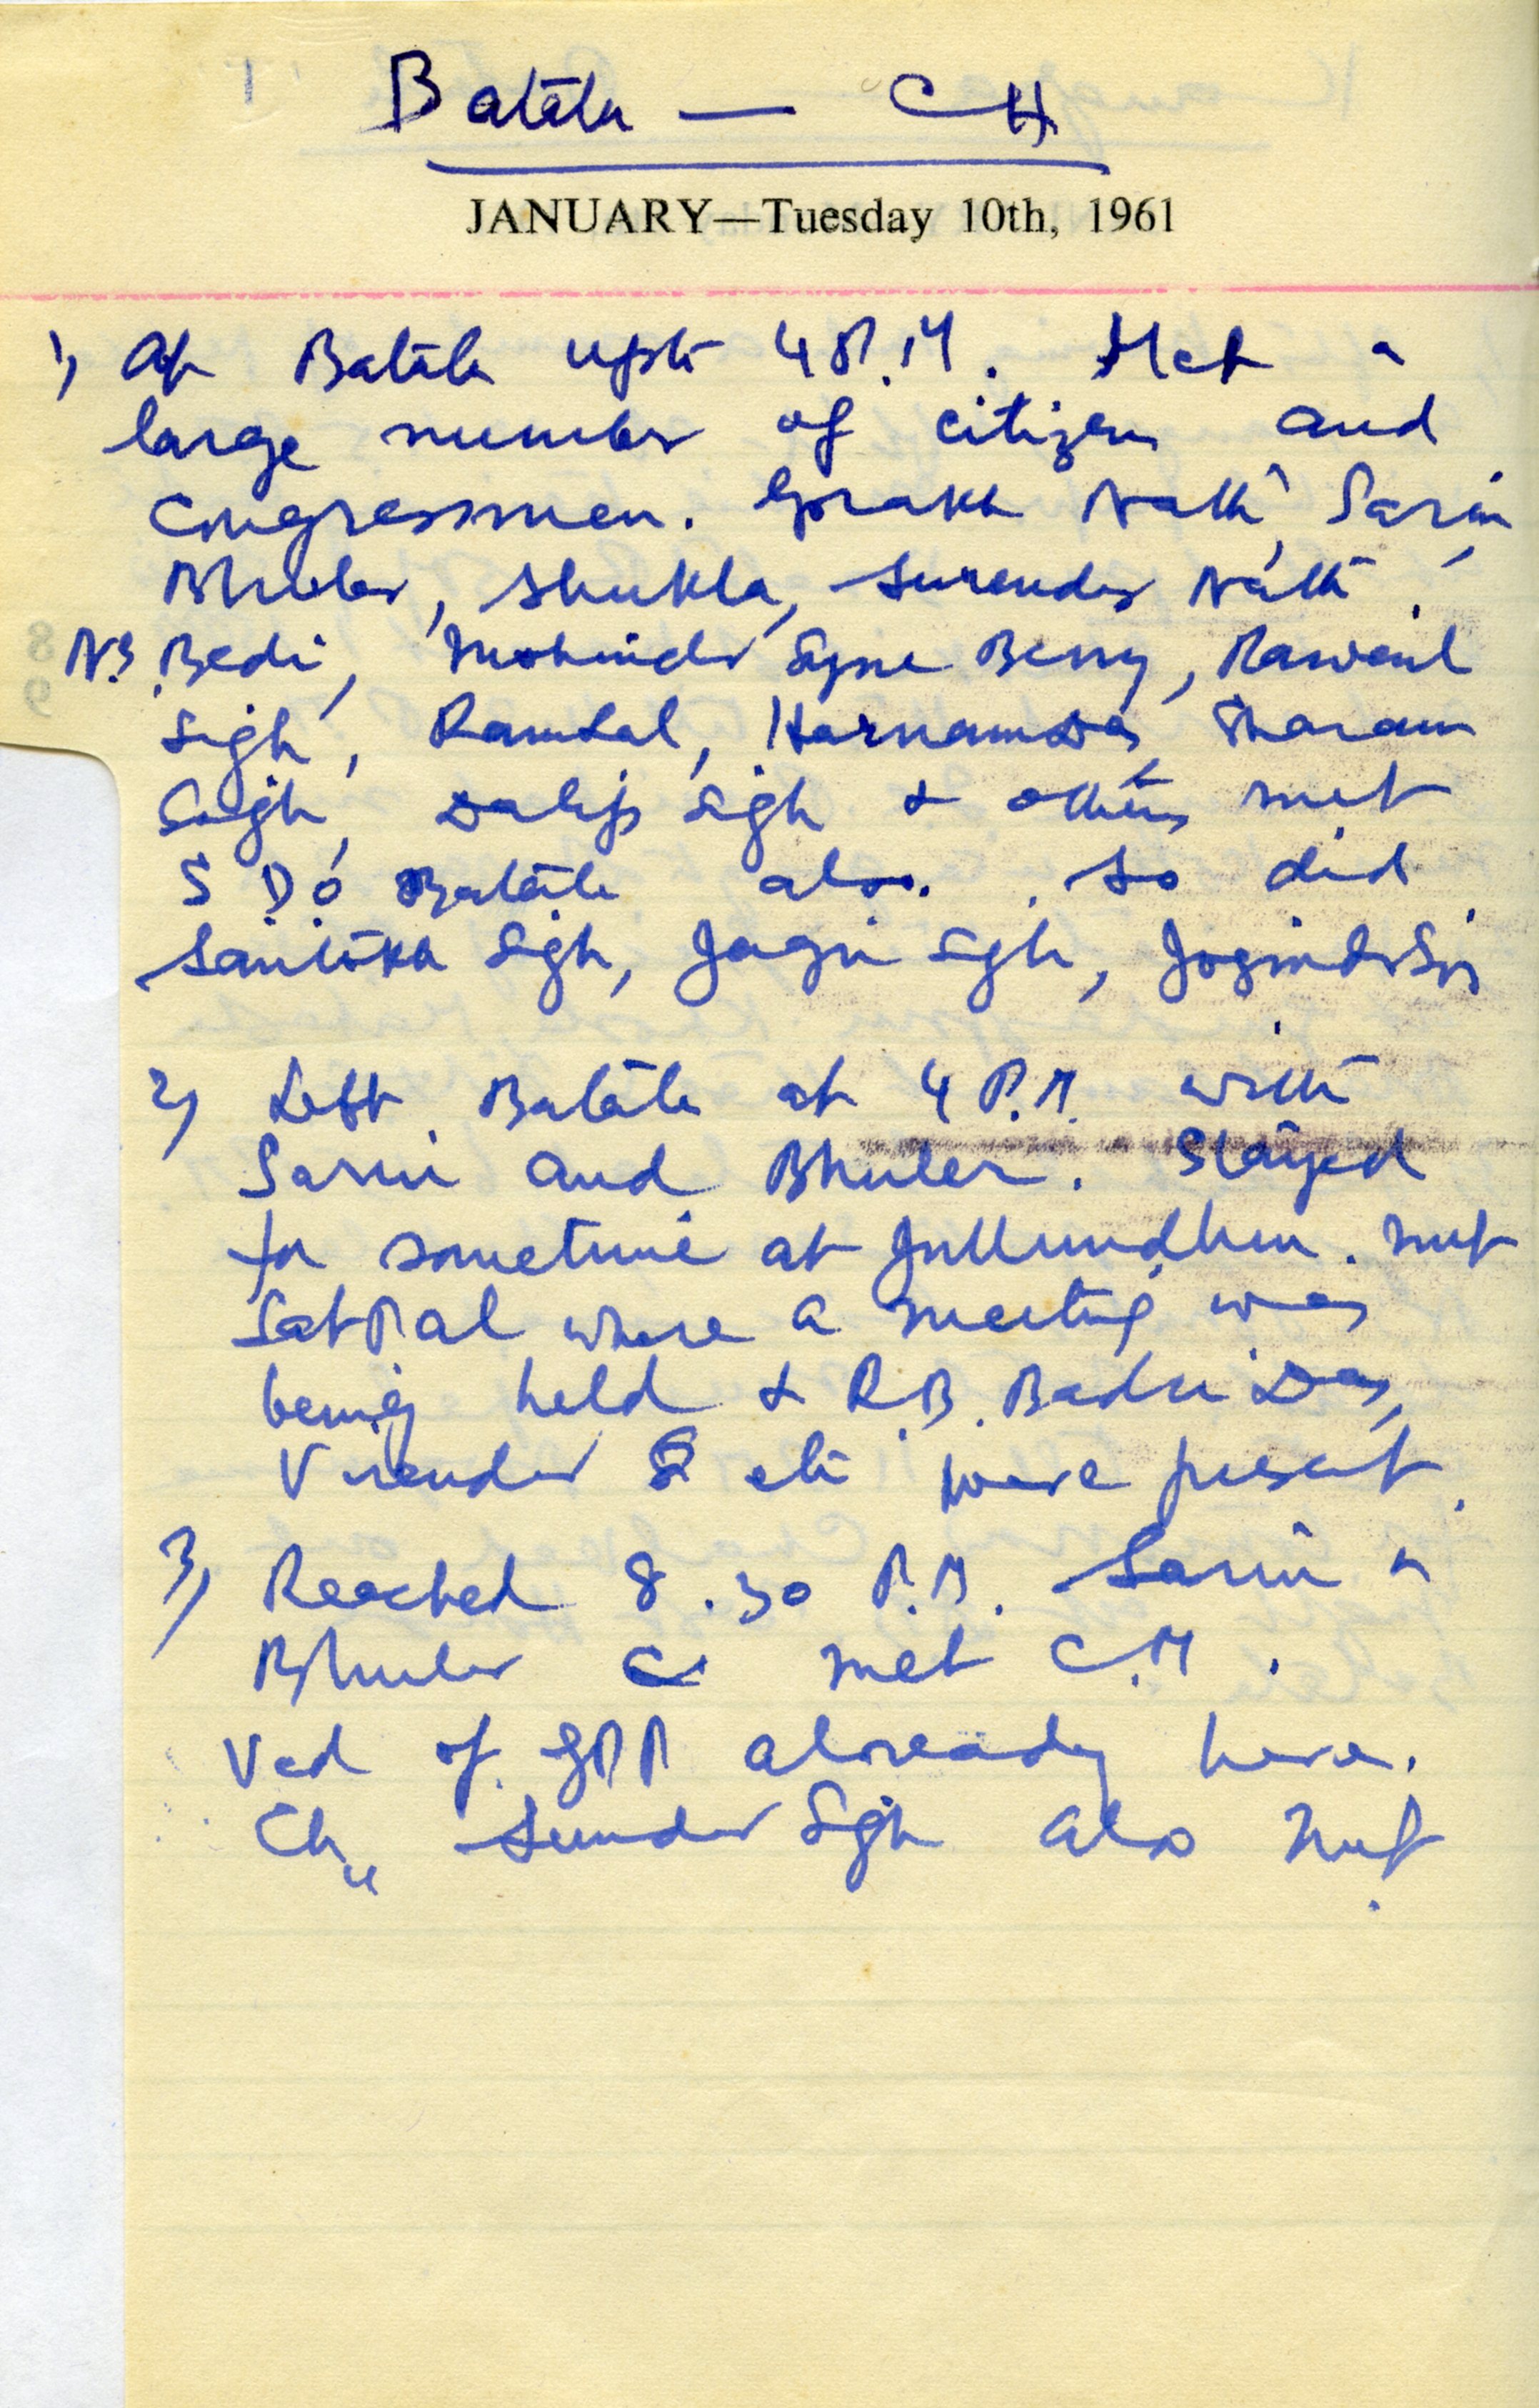 Batala — CH
JANUARY—Tuesday 10th, 1961
1) At Batala upto 4 P.M. Met a
large number of citizens and
Congressmen. Gorakh Nath, Sarin,
Bhuler, Shukla, Surender Nath.
N.S. Bedi, Mohinder Berry, Rawail
Sigh, Ramlal, Harnam Das, Dharam
Sigh, Dalip Sigh & others met
S.D.O. Batala also. So did
Santokh Sigh, Jagir Sigh, Joginder
2) Left Batala at 4 P.M. with
Sarin and Bhuler. Stayed
for sometime at Jullundhur. met
Sat Pal where a meeting was
being held & R.B. Badri Das,
Virender etc were present.
3) Reached 8.30 P.M. Sarin &
Bhuler met C.M.
Ved of already here.
Ch. Sunder Sigh also met.